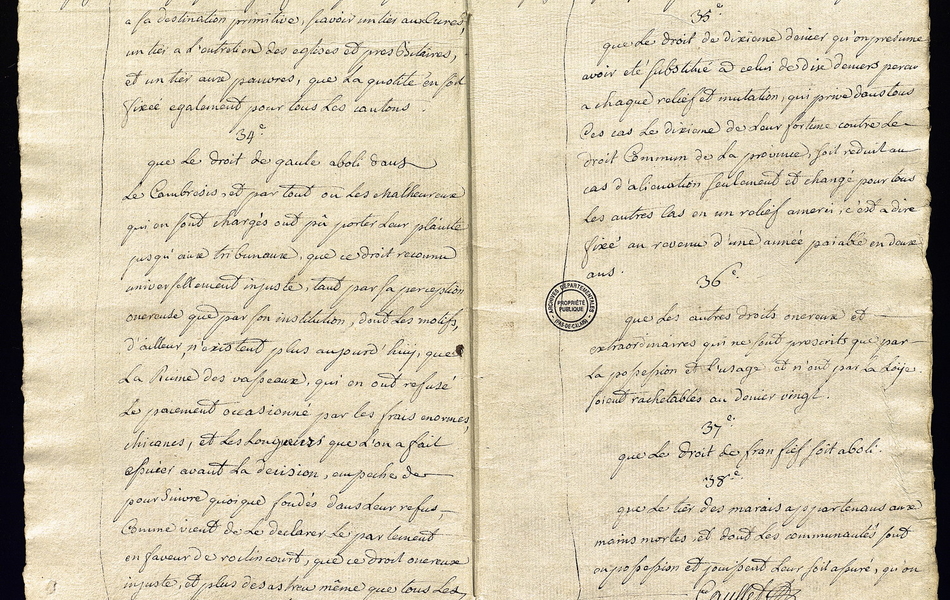 a sa destination primitive, savoir un tier aux Curés,
un tier a l'entretien des eglises et presbitaires,
et un tier aux pauvres, que la quotité en soit
fixeé egalement pour tous les cantons.
34e
que le droit de gaule aboli dans
le Cambresis, et par tout ou les malheureux
qui en sont chargés ont pû porter leur plainte
jusqu'aux tribunaux, que ce droit reconnu
universellement injuste, tant par sa perception
onereuse que par son institution, dont les motifs,
d'ailleur, n'existent plus aujourd'huy, que
la Ruine des vasseaux, qui en ont refusé
le paiement occasionné par les frais enormes,
chicanes, et les longueurs que l'on a fait
essuier avant la decision, empeche de
poursuivre quoique fondés dans leur refus,
Comme vient de le declarer le parlement
en faveur de roclincourt, que ce droit onereux
injuste, et plus desastreux même que tous les
35e
que le droit de dixieme denier qu'on presume
avoir eté substitué a celui de dix deniers percu
a chaque relief et mutation, qui prive dans tous
Ces cas le dixieme de leur fortune contre le
droit Commun de la province, soit reduit au
cas d'alienation seulement et changé pour tous
les autres cas en un relief amerci, c'est a dire
fixeé au revenu d'une année paiable en deux
ans.
ARCHIVES DÉPARTEMENTALES
PROPRIÉTÉ
PUBLIQUE
PAS-DE-CALAIS
36e
que les autres droits onereux et
extraordinaires qui ne sont prescrits que par
la possession et l'usage et n'ont par la loix
soient rachetables au denier vingt.
37e
que le droit de fran fief soit aboli.
38e
que le tier des marais appartenans aux
mains mortes et dont les communautés sont
en possession et jouissent leur soit assuré, qu'on